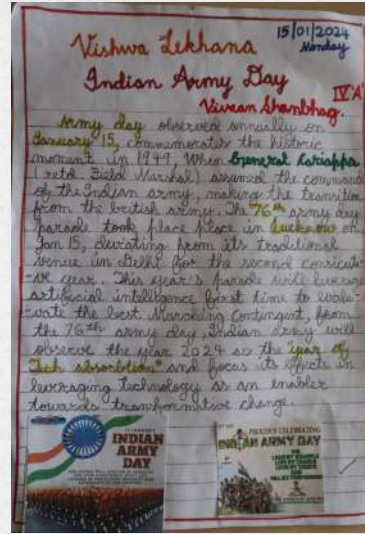 15/01/2024
Monday
Vishwa Lekhana
Indian Army Day
IV 'A'
Vivaan Shanbhag.
Army day observed annually on
January 15, commemorates the historic
moment in 1949, When General Cariappa
(retd Field Marshal) assumed the command
of the Indian army, making the transition
from the british army. The 76th army day
parade took place place in Lucknow on
Jan 15, deviating from its traditional
venue in Delhi for the second consicuti-
-ve year. This year's parade will leverage
artificial intelligence first time to evalu-
-vate the best Marching Contingent, from
the 76th army day, Indian army will
observe the year 2024 as the "year of
Tech absorbtion" and focus its effects in
leveraging technology as an enabler
towards transformative change.
INDIAN
ARMY
DAY
PROUDLY CELEBRATING
INDIAN ARMY DAY